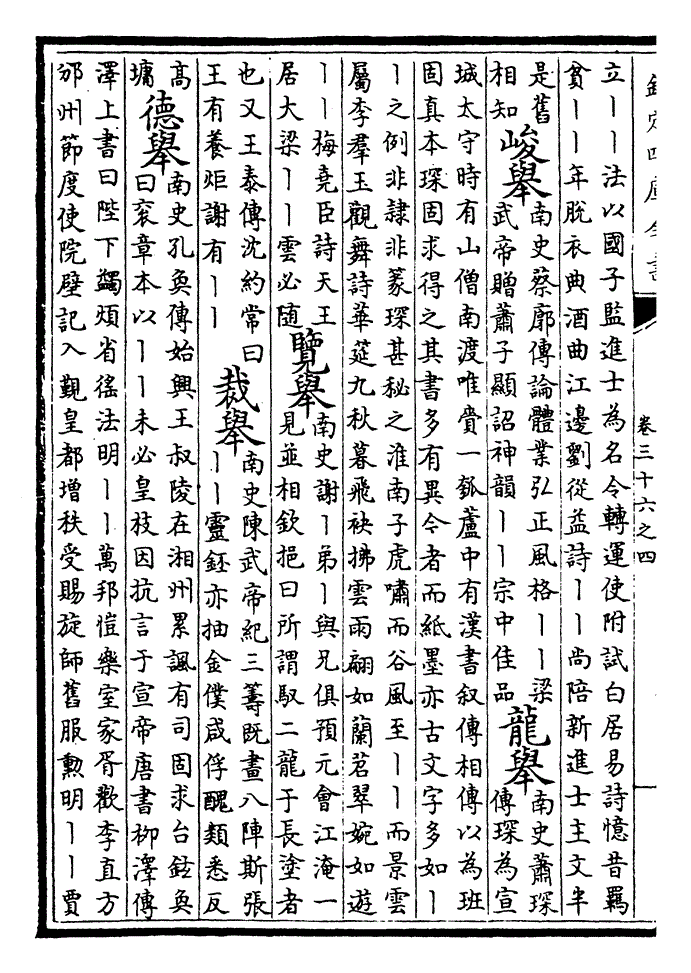 欽定四庫全書
卷三十六之四
立丨丨法以國子監進士為名令轉運使附試白居易詩憶昔羈
貧丨丨年脫衣典酒曲江邊劉從益詩丨丨尚陪新進士主文半
是舊
相知
峻舉
南史蔡廓傳論體業弘正風格丨丨梁
武帝贈蕭子顯詔神韻丨丨宗中佳品
龍舉
南史蕭琛
傳琛為宣
城太守時有山僧南渡唯賷一瓠蘆中有漢書叙傳相傳以為班
固真本琛固求得之其書多有異今者而紙墨亦古文字多如丨
丨之例非隸非篆琛甚秘之淮南子虎嘯而谷風至丨丨而景雲
屬李羣玉觀舞詩華筵九秋暮飛袂拂雲雨翩如蘭苕翠婉如遊
丨丨梅堯臣詩天王
居大梁丨丨雲必随
覽舉
南史謝丨弟丨與兄俱預元會江淹一
見並相欽挹曰所謂馭二龍于長塗者
也又王泰傳沈約常曰
王有養炬謝有丨丨
裁舉
南史陳武帝紀三籌既畫八陣斯張
丨丨靈鉟亦抽金僕咸俘醜類悉反
高
墉
德舉
南史孔奐傳始興王叔陵在湘州累諷有司固求台鉉奐
曰衮章本以丨丨未必皇枝因抗言于宣帝唐書柳澤傳
澤上書曰陛下蠲煩省徭法明丨丨萬邦愷樂室家胥歡李直方
邠州節度使院壁記入覲皇都增秩受賜旋師舊服勲明丨丨賈